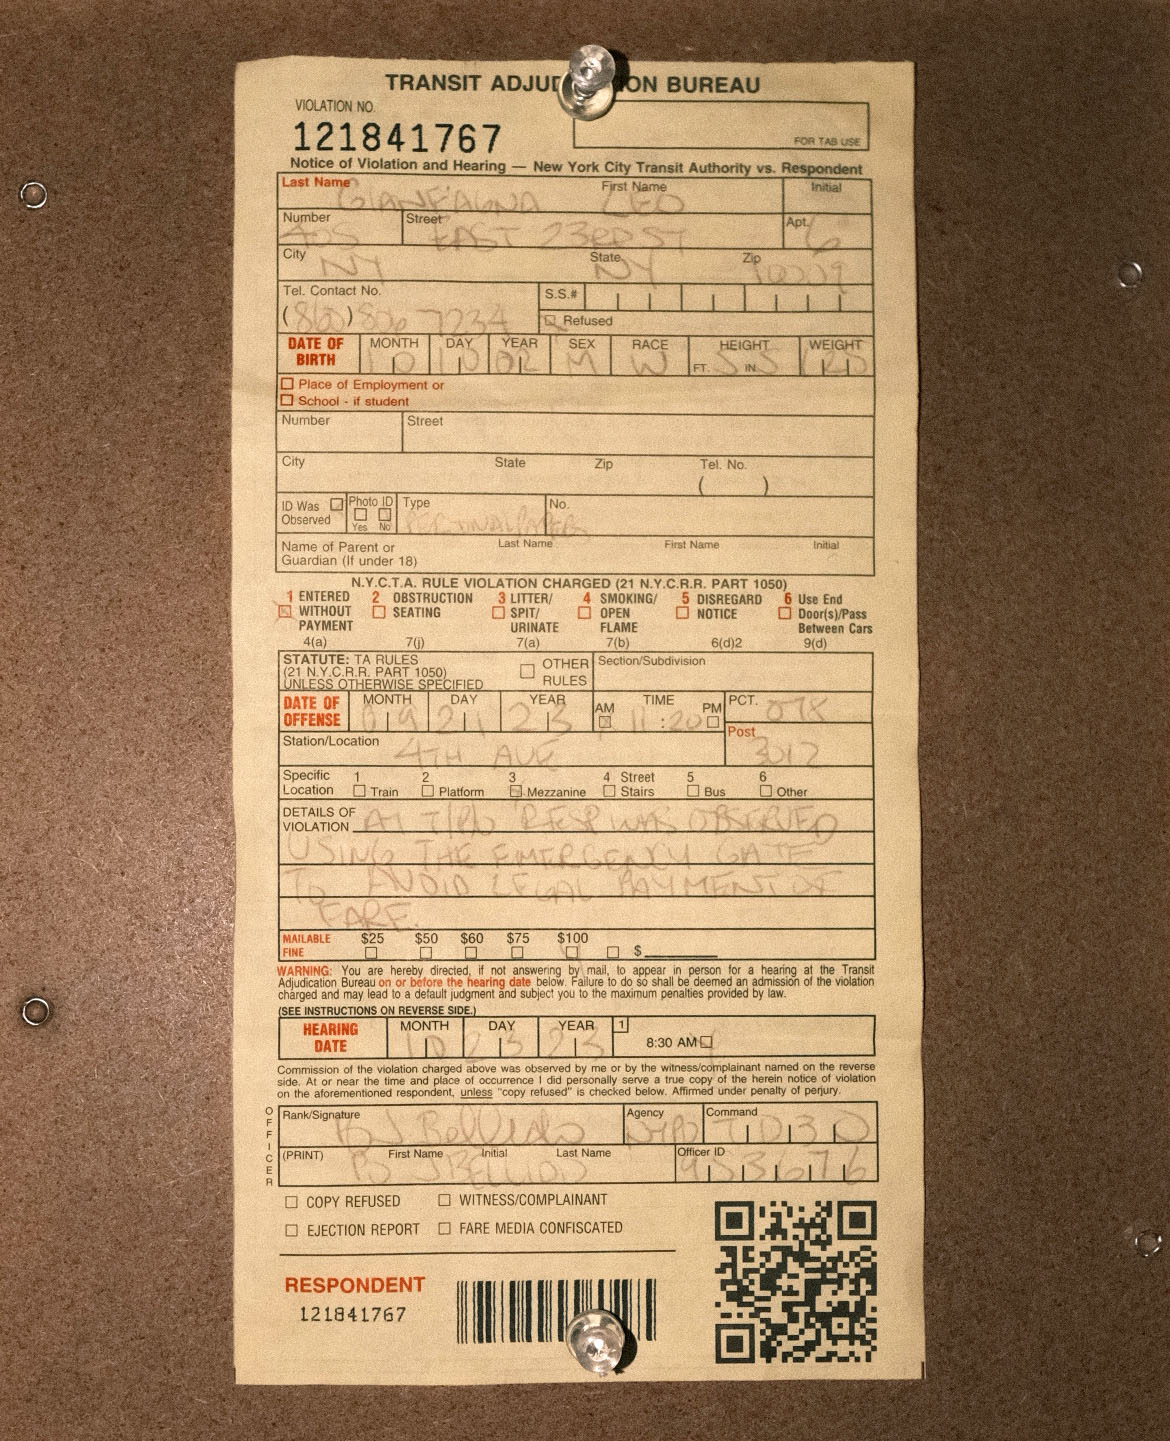 TRANSIT ADJUD ON BUREAU
VIOLATION NO.
121841767
FOR TAB USE
Notice of Violation and Hearing — New York City Transit Authority vs. Respondent
Last Name First Name Initial
GIANFAGNA LEO
Number Street Apt.
405 EAST 23RD ST 6
City State Zip
NY NY
Tel. Contact No. S.S.#
( ) 7234 Refused
DATE OF BIRTH MONTH DAY YEAR SEX RACE HEIGHT WEIGHT
10 10 02 M W FT. 5 IN. 5 120
Place of Employment or
School - if student
Number Street
City State Zip Tel. No.
( )
ID Was Observed Photo ID Yes No Type No.
Name of Parent or Guardian (If under 18) Last Name First Name Initial
N.Y.C.T.A. RULE VIOLATION CHARGED (21 N.Y.C.R.R. PART 1050)
1 ENTERED WITHOUT PAYMENT 2 OBSTRUCTION SEATING 3 LITTER/ SPIT/ URINATE 4 SMOKING/ OPEN FLAME 5 DISREGARD NOTICE 6 Use End Door(s)/Pass Between Cars
4(a) 7(j) 7(a) 7(b) 6(d)2 9(d)
STATUTE: TA RULES
(21 N.Y.C.R.R. PART 1050)
UNLESS OTHERWISE SPECIFIED
OTHER RULES
Section/Subdivision
DATE OF OFFENSE MONTH DAY YEAR AM TIME PM PCT.
09 21 23 11:20
Station/Location Post
4TH AVE 3012
Specific Location 1 Train 2 Platform 3 Mezzanine 4 Street Stairs 5 Bus 6 Other
DETAILS OF VIOLATION AT T/P/O RESP WAS OBSERVED
USING THE EMERGENCY GATE
TO AVOID LEGAL PAYMENT OF
FARE.
MAILABLE FINE $25 $50 $60 $75 $100 $
WARNING: You are hereby directed, if not answering by mail, to appear in person for a hearing at the Transit
Adjudication Bureau on or before the hearing date below. Failure to do so shall be deemed an admission of the violation
charged and may lead to a default judgment and subject you to the maximum penalties provided by law.
(SEE INSTRUCTIONS ON REVERSE SIDE.)
HEARING DATE MONTH DAY YEAR 1
10 23 23 8:30 AM
Commission of the violation charged above was observed by me or by the witness/complainant named on the reverse
side. At or near the time and place of occurrence I did personally serve a true copy of the herein notice of violation
on the aforementioned respondent, unless "copy refused" is checked below. Affirmed under penalty of perjury.
OFFICER
Rank/Signature Agency Command
NYPD TD30
(PRINT) First Name Initial Last Name Officer ID
953676
COPY REFUSED WITNESS/COMPLAINANT
EJECTION REPORT FARE MEDIA CONFISCATED
RESPONDENT
121841767